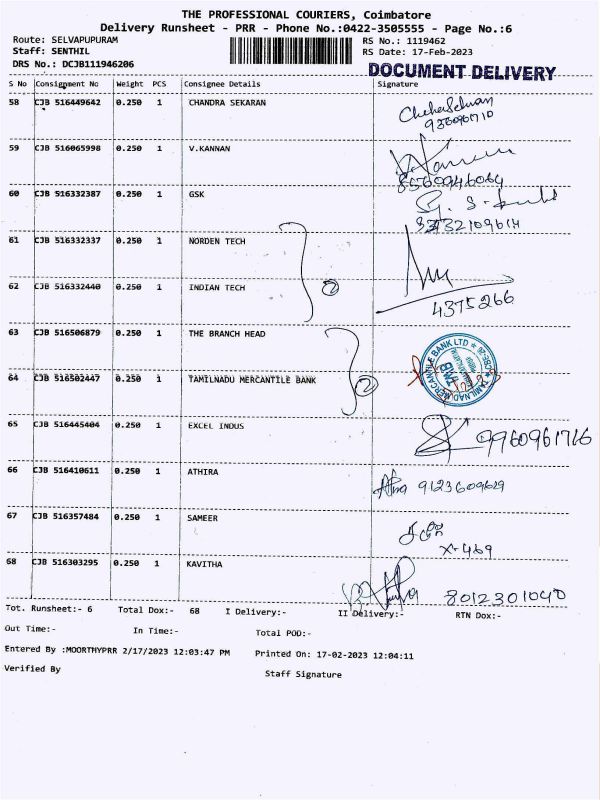 THE PROFESSIONAL COURIERS, Coimbatore
Delivery Runsheet - PRR - Phone No.:0422-3505555 - Page No.:6
Route: SELVAPUPURAM RS No.: 1119462
Staff: SENTHIL RS Date: 17-Feb-2023
DRS No.: DCJB111946206 DOCUMENT DELIVERY
S No Consignment No Weight PCS Consignee Details Signature
58 CJB 516449642 0.250 1 CHANDRA SEKARAN
59 CJB 516065998 0.250 1 V.KANNAN
60 CJB 516332387 0.250 1 GSK
61 CJB 516332337 0.250 1 NORDEN TECH
62 CJB 516332440 0.250 1 INDIAN TECH 2
4375266
63 CJB 516506879 0.250 1 THE BRANCH HEAD
64 CJB 516502447 0.250 1 TAMILNADU MERCANTILE BANK 2
TAMILNAD MERCANTILE BANK LTD
TMB
65 CJB 516445404 0.250 1 EXCEL INDUS 9960961716
66 CJB 516410611 0.250 1 ATHIRA 9123609629
67 CJB 516357484 0.250 1 SAMEER
X-469
68 CJB 516303295 0.250 1 KAVITHA 8012301040
Tot. Runsheet:- 6 Total Dox:- 68 I Delivery:- II Delivery:- RTN Dox:-
Out Time:- In Time:- Total POD:-
Entered By :MOORTHYPRR 2/17/2023 12:03:47 PM Printed On: 17-02-2023 12:04:11
Verified By Staff Signature